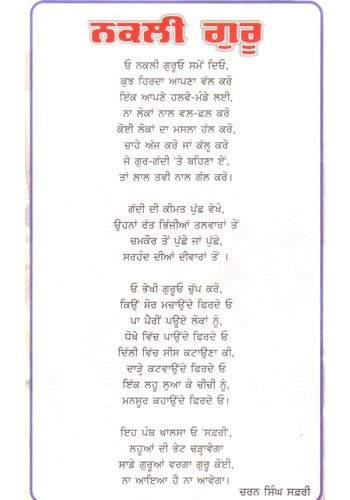 ਨਕਲੀ ਗੁਰੂ
ਓ ਨਕਲੀ ਗੁਰੂਓ ਸਮੇਂ ਦਿਓ,
ਕੁਝ ਹਿਰਦਾ ਆਪਣਾ ਵੱਲ ਕਰੋ
ਇੱਕ ਆਪਣੇ ਹਲਵੇ-ਮੰਡੇ ਲਈ,
ਨਾ ਲੋਕਾਂ ਨਾਲ ਵਲ਼-ਛਲ਼ ਕਰੋ
ਕੋਈ ਲੋਕਾਂ ਦਾ ਮਸਲਾ ਹੱਲ ਕਰੋ,
ਚਾਹੇ ਅੱਜ ਕਰੋ ਜਾਂ ਕੱਲ੍ਹ ਕਰੋ
ਜੇ ਗੁਰ-ਗੱਦੀ 'ਤੇ ਬਹਿਣਾ ਏਂ,
ਤਾਂ ਲਾਲ ਤਵੀ ਨਾਲ ਗੱਲ ਕਰੋ।
ਗੱਦੀ ਦੀ ਕੀਮਤ ਪੁੱਛ ਵੇਖੋ,
ਉਹਨਾਂ ਰੱਤ ਭਿੱਜੀਆਂ ਤਲਵਾਰਾਂ ਤੋਂ
ਚਮਕੌਰ ਤੋਂ ਪੁੱਛੋ ਜਾਂ ਪੁੱਛੋ,
ਸਰਹੰਦ ਦੀਆਂ ਦੀਵਾਰਾਂ ਤੋਂ ।
ਓ ਭੇਖੀ ਗੁਰੂਓ ਚੁੱਪ ਕਰੋ,
ਕਿਉਂ ਸ਼ੋਰ ਮਚਾਉਂਦੇ ਫਿਰਦੇ ਓ
ਪਾ ਪੈਰੀਂ ਪਊਏ ਲੋਕਾਂ ਨੂੰ,
ਧੋਖੇ ਵਿੱਚ ਪਾਉਂਦੇ ਫਿਰਦੇ ਓ
ਦਿੱਲੀ ਵਿੱਚ ਸੀਸ ਕਟਾਉਣਾ ਕੀ,
ਦਾੜ੍ਹੇ ਕਟਵਾਉਂਦੇ ਫਿਰਦੇ ਓ
ਇੱਕ ਲਹੂ ਲੁਆ ਕੇ ਚੀਚੀ ਨੂੰ,
ਮਨਸੂਰ ਕਹਾਉਂਦੇ ਫਿਰਦੇ ਓ।
ਇਹ ਪੰਥ ਖਾਲਸਾ ਓ 'ਸਫ਼ਰੀ',
ਲਹੂਆਂ ਦੀ ਭੇਟ ਚੜਾਵੇਗਾ
ਸਾਡੇ ਗੁਰੂਆਂ ਵਰਗਾ ਗੁਰੂ ਕੋਈ,
ਨਾ ਆਇਆ ਹੈ ਨਾ ਆਵੇਗਾ।
ਚਰਨ ਸਿੰਘ ਸਫ਼ਰੀ